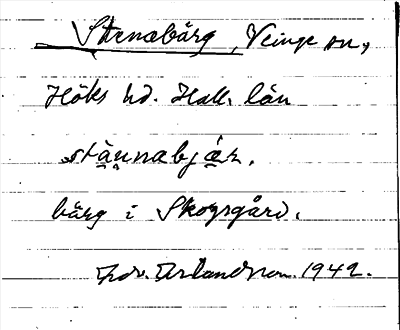 Stenabärg, Veinge sn,
Höks hd. Hall. län
stännabjär.
bärg i Skogsgård.
1942.